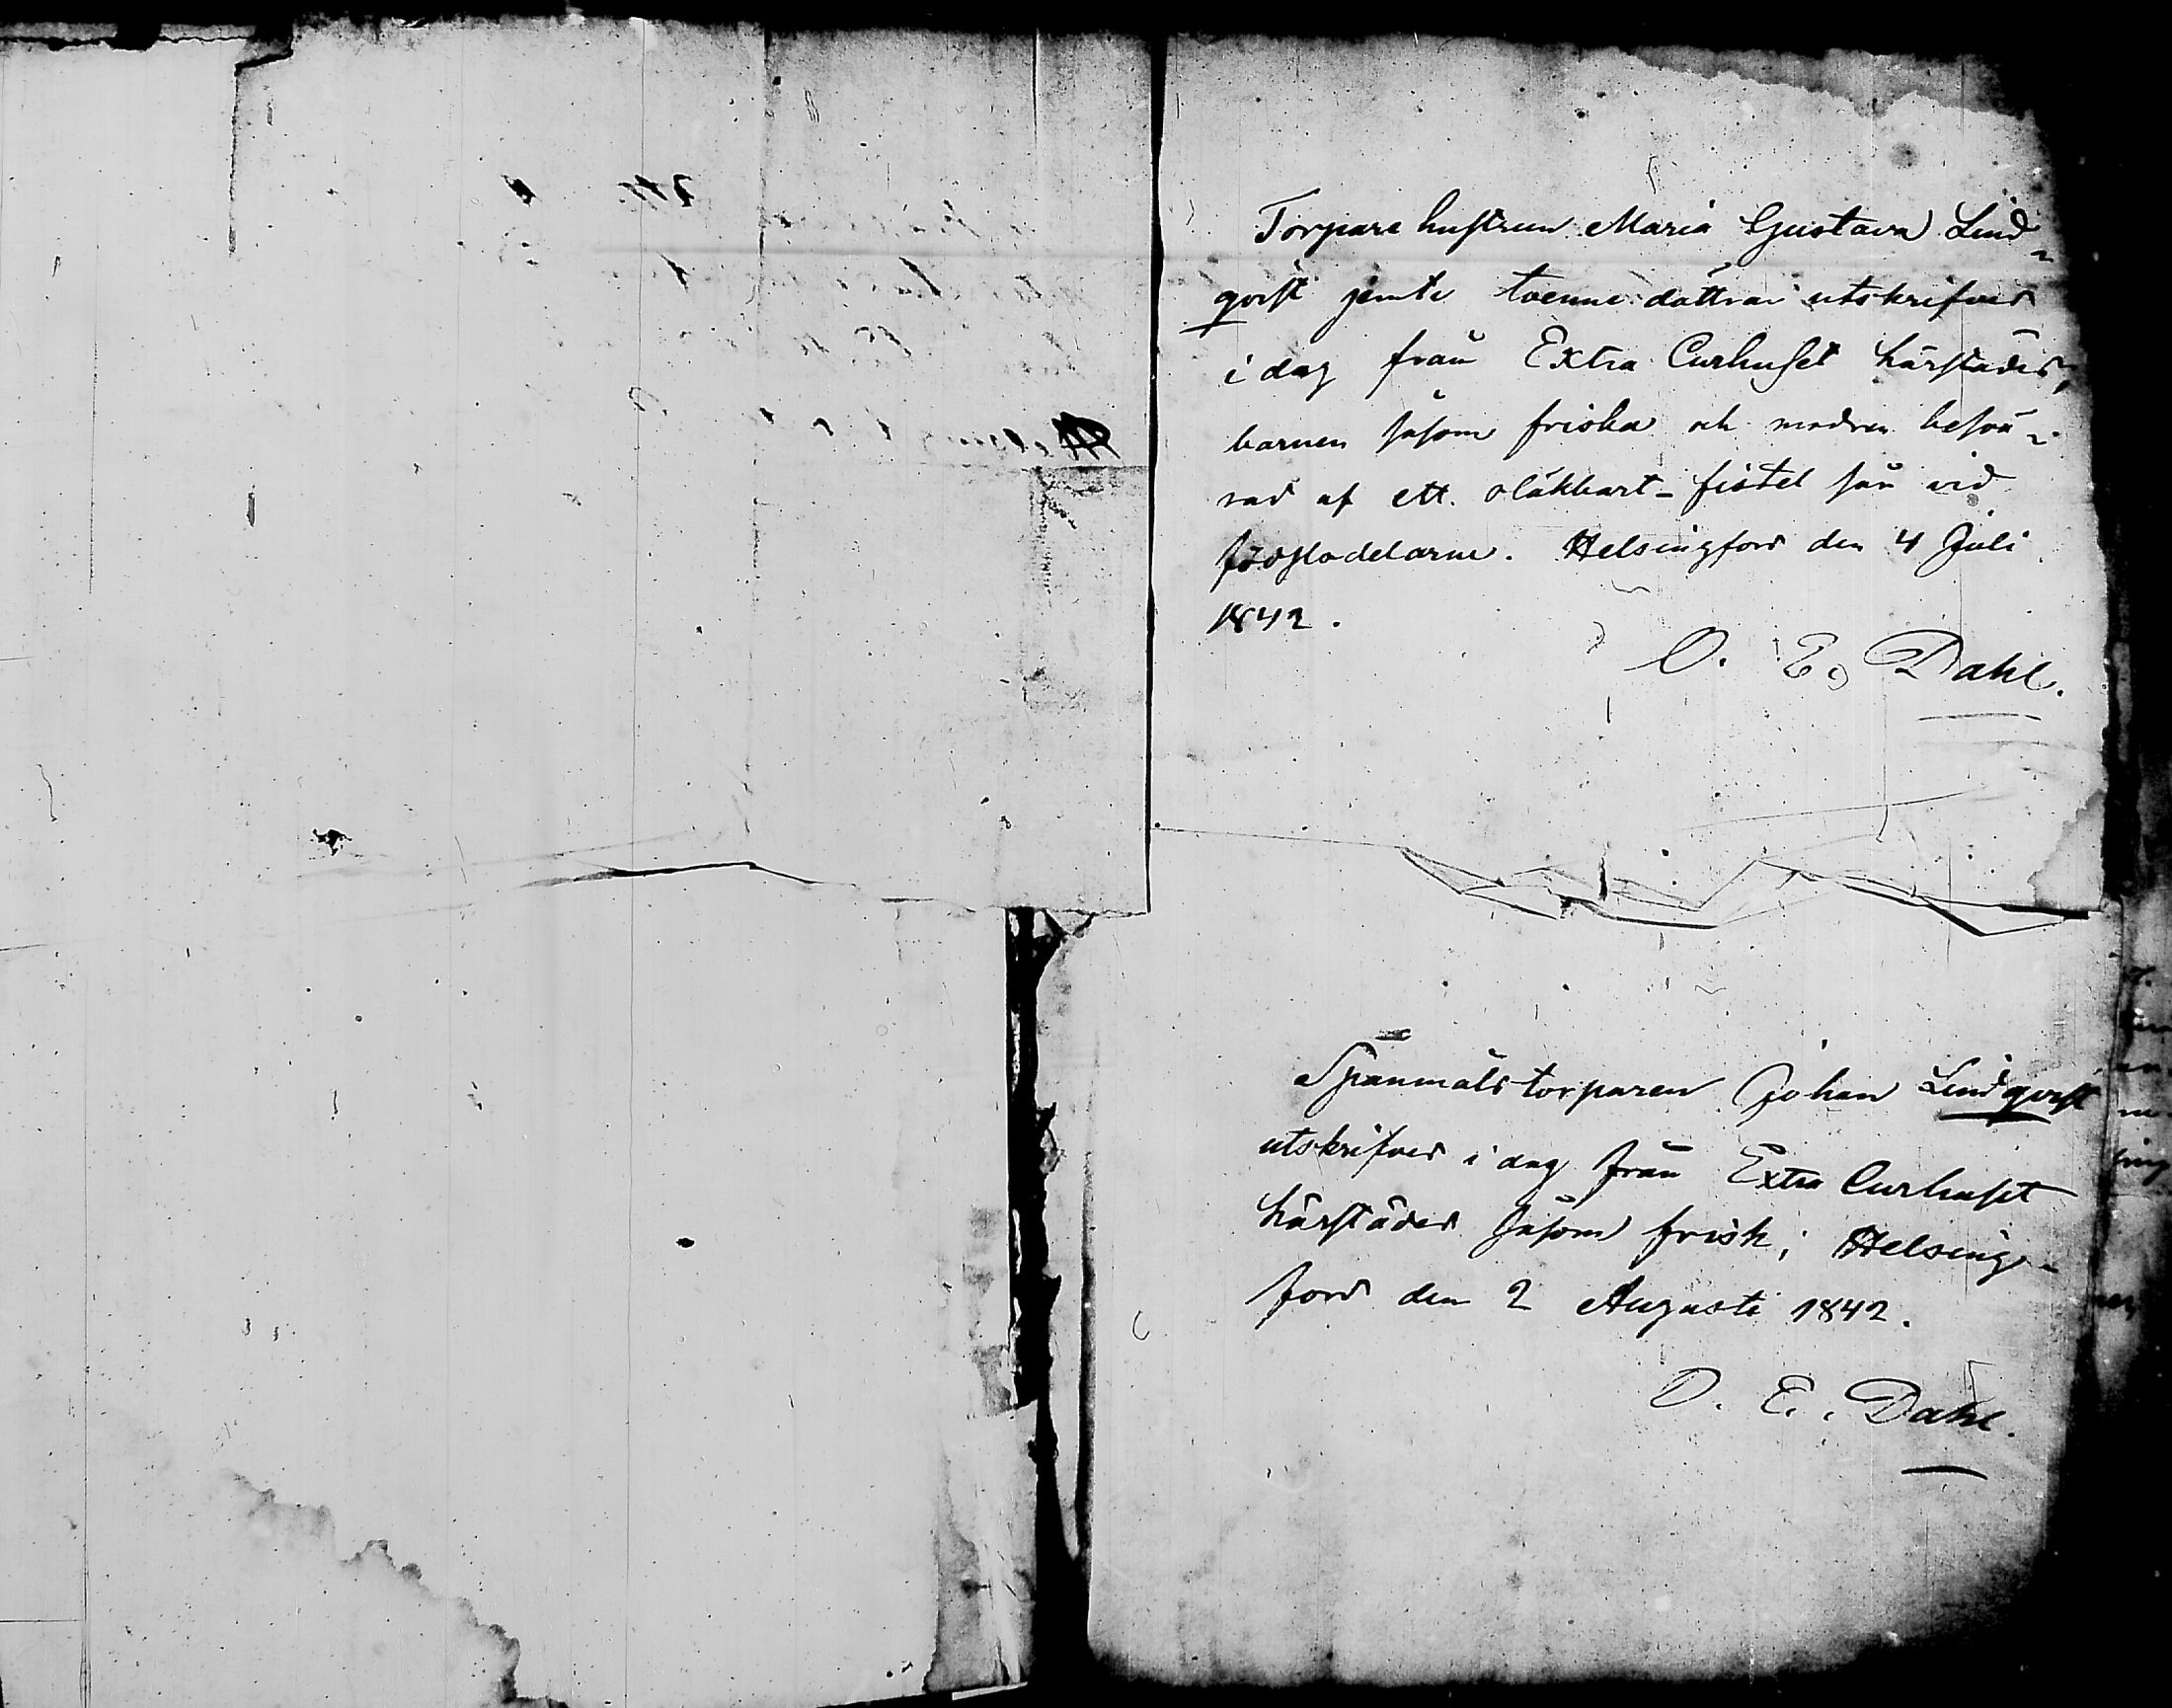 Torpare hustrun Maria Gustava Lind-
qvist jemte tvenne döttrar utskrifves
i dag från Extra Curhuset härstädes,
barnen såsom friska och modren besvä-
rad af ett oläkbart fistel sår vid
födslodelarne. Helsingfors den 4 Juli
1842.
O. E. Dahl.
Spanmåls torparen Johan Lindqvist
utskrifves i dag från Extra Curhuset
härstädes såsom frisk; Helsing-
fors den 2 Augusti 1842.
O. E. Dahl.